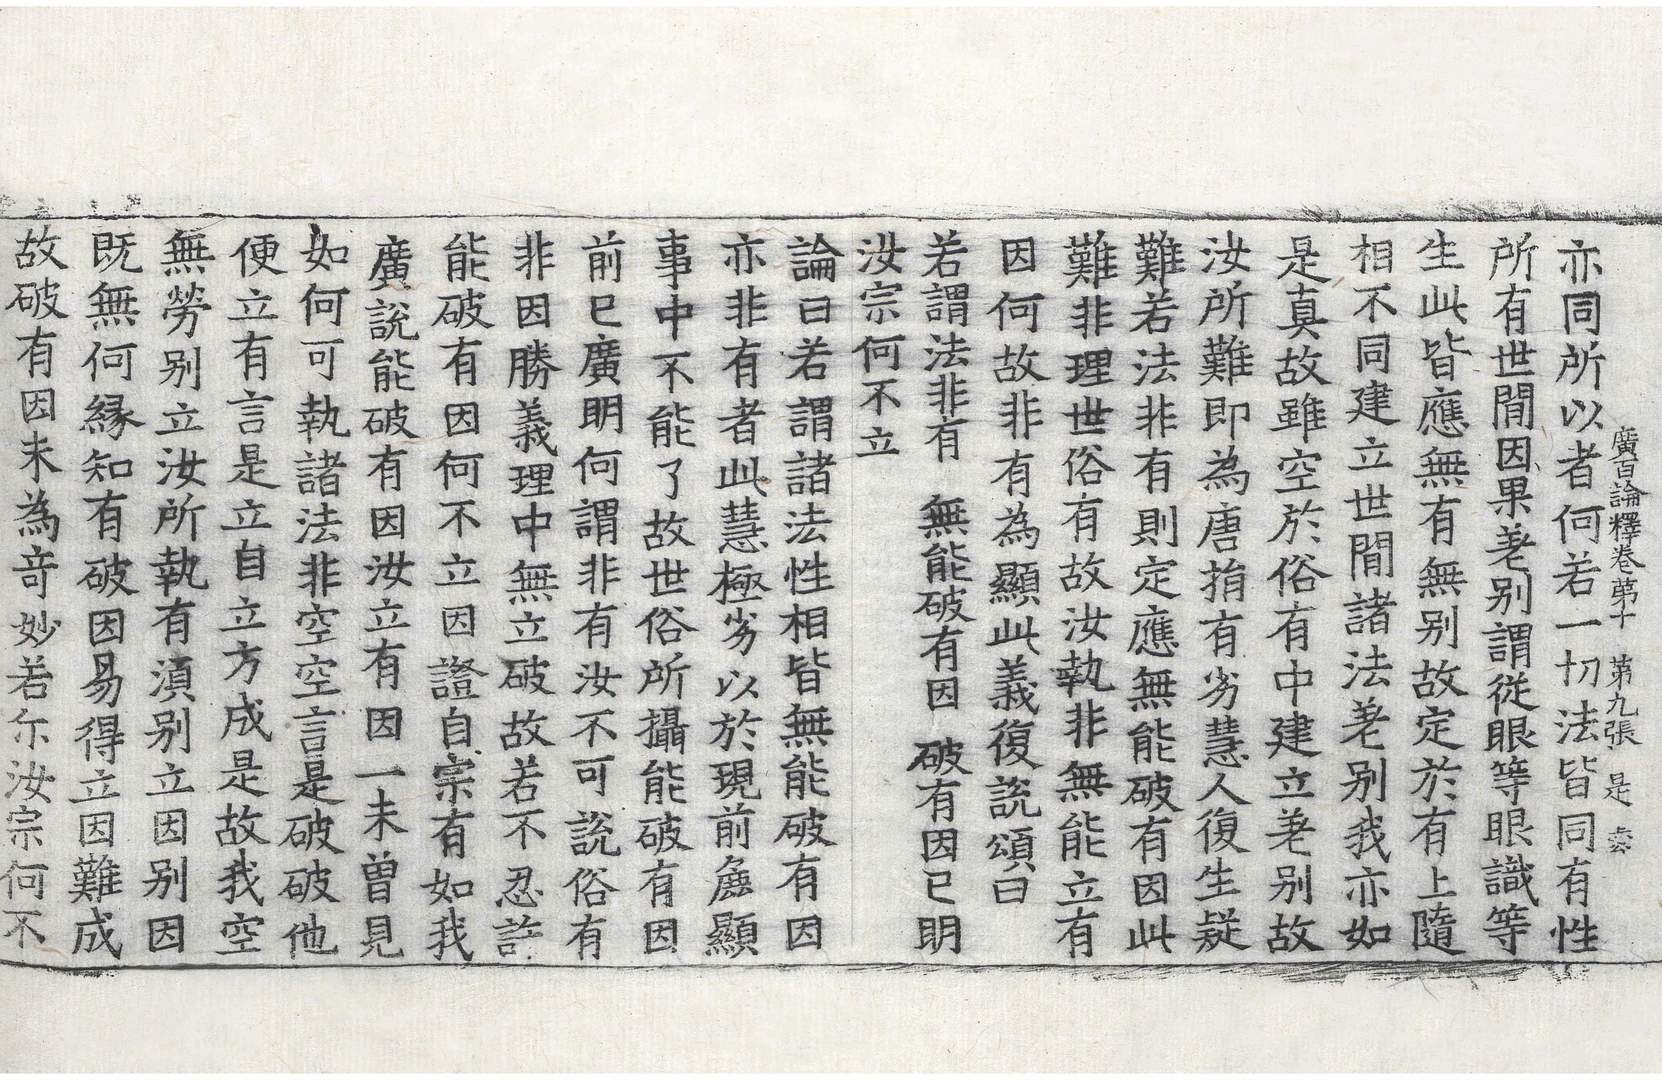 廣百論釋卷第十 第九張 是
亦同所以者何若一切法皆同有性
所有世間因果差別謂從眼等眼識等
生此皆應無有無別故定於有上隨
相不同建立世間諸法差別我亦如
是真故雖空於俗有中建立差別故
汝所難即為唐捐有劣慧人復生疑
難若法非有則定應無能破有因此
難非理世俗有故汝執非無能立有
因何故非有為顯此義復說頌曰
若謂法非有 無能破有因 破有因已明
汝宗何不立
論曰若謂諸法性相皆無能破有因
亦非有者此慧極劣以於現前麁顯
事中不能了故世俗所攝能破有因
前已廣明何謂非有汝不可說俗有
非因勝義理中無立破故若不忍許
能破有因何不立因證自宗有如我
廣說能破有因汝立有因一未曽見
如何可執諸法非空空言是破破他
便立有言是立自立方成是故我空
無勞別立汝所執有湏別立因別因
既無何縁知有破因易得立因難成
故破有因未為竒妙若尓汝宗何不